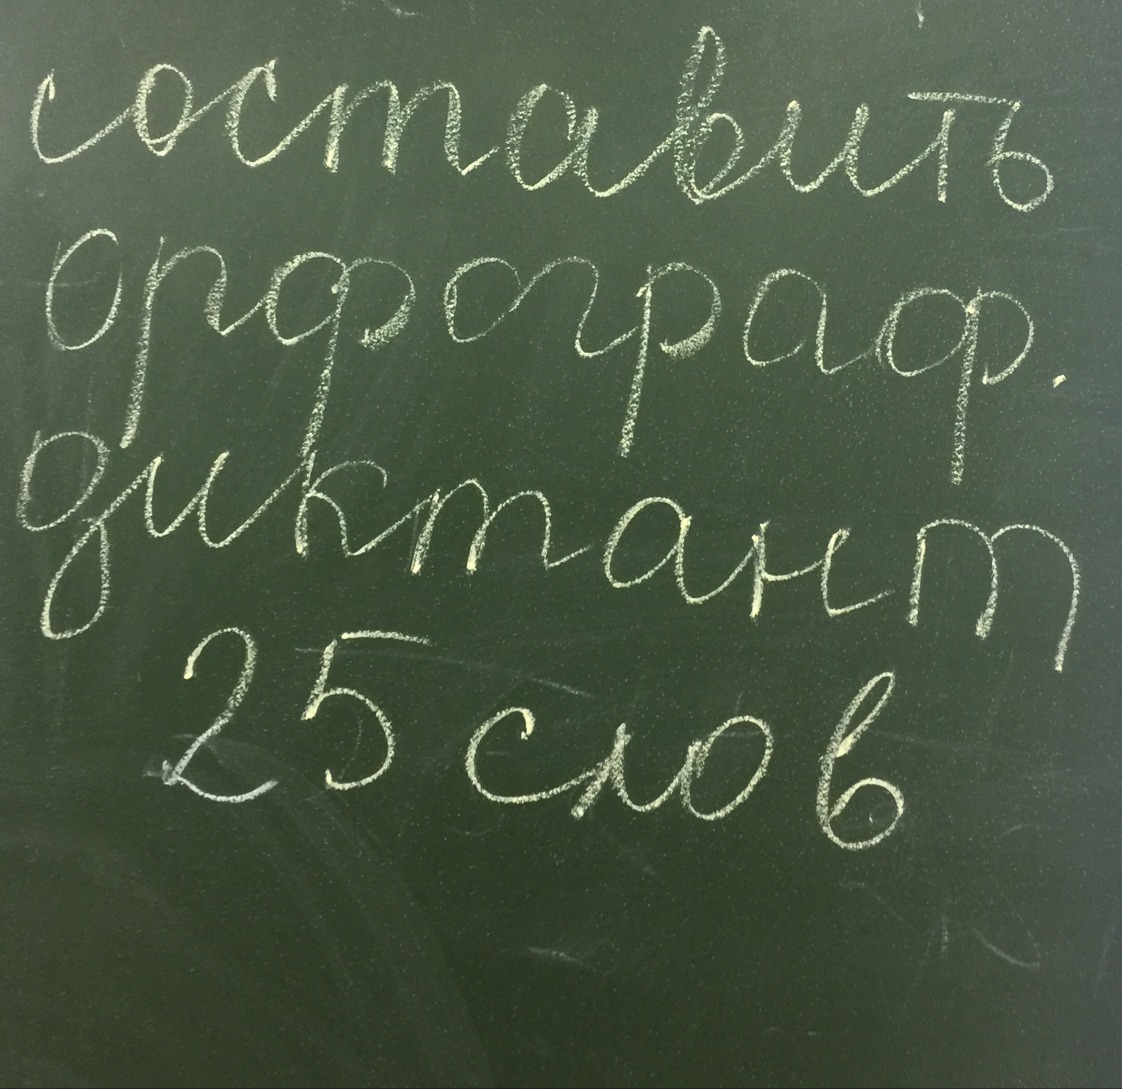 составить
орфограф.
диктант
25 слов